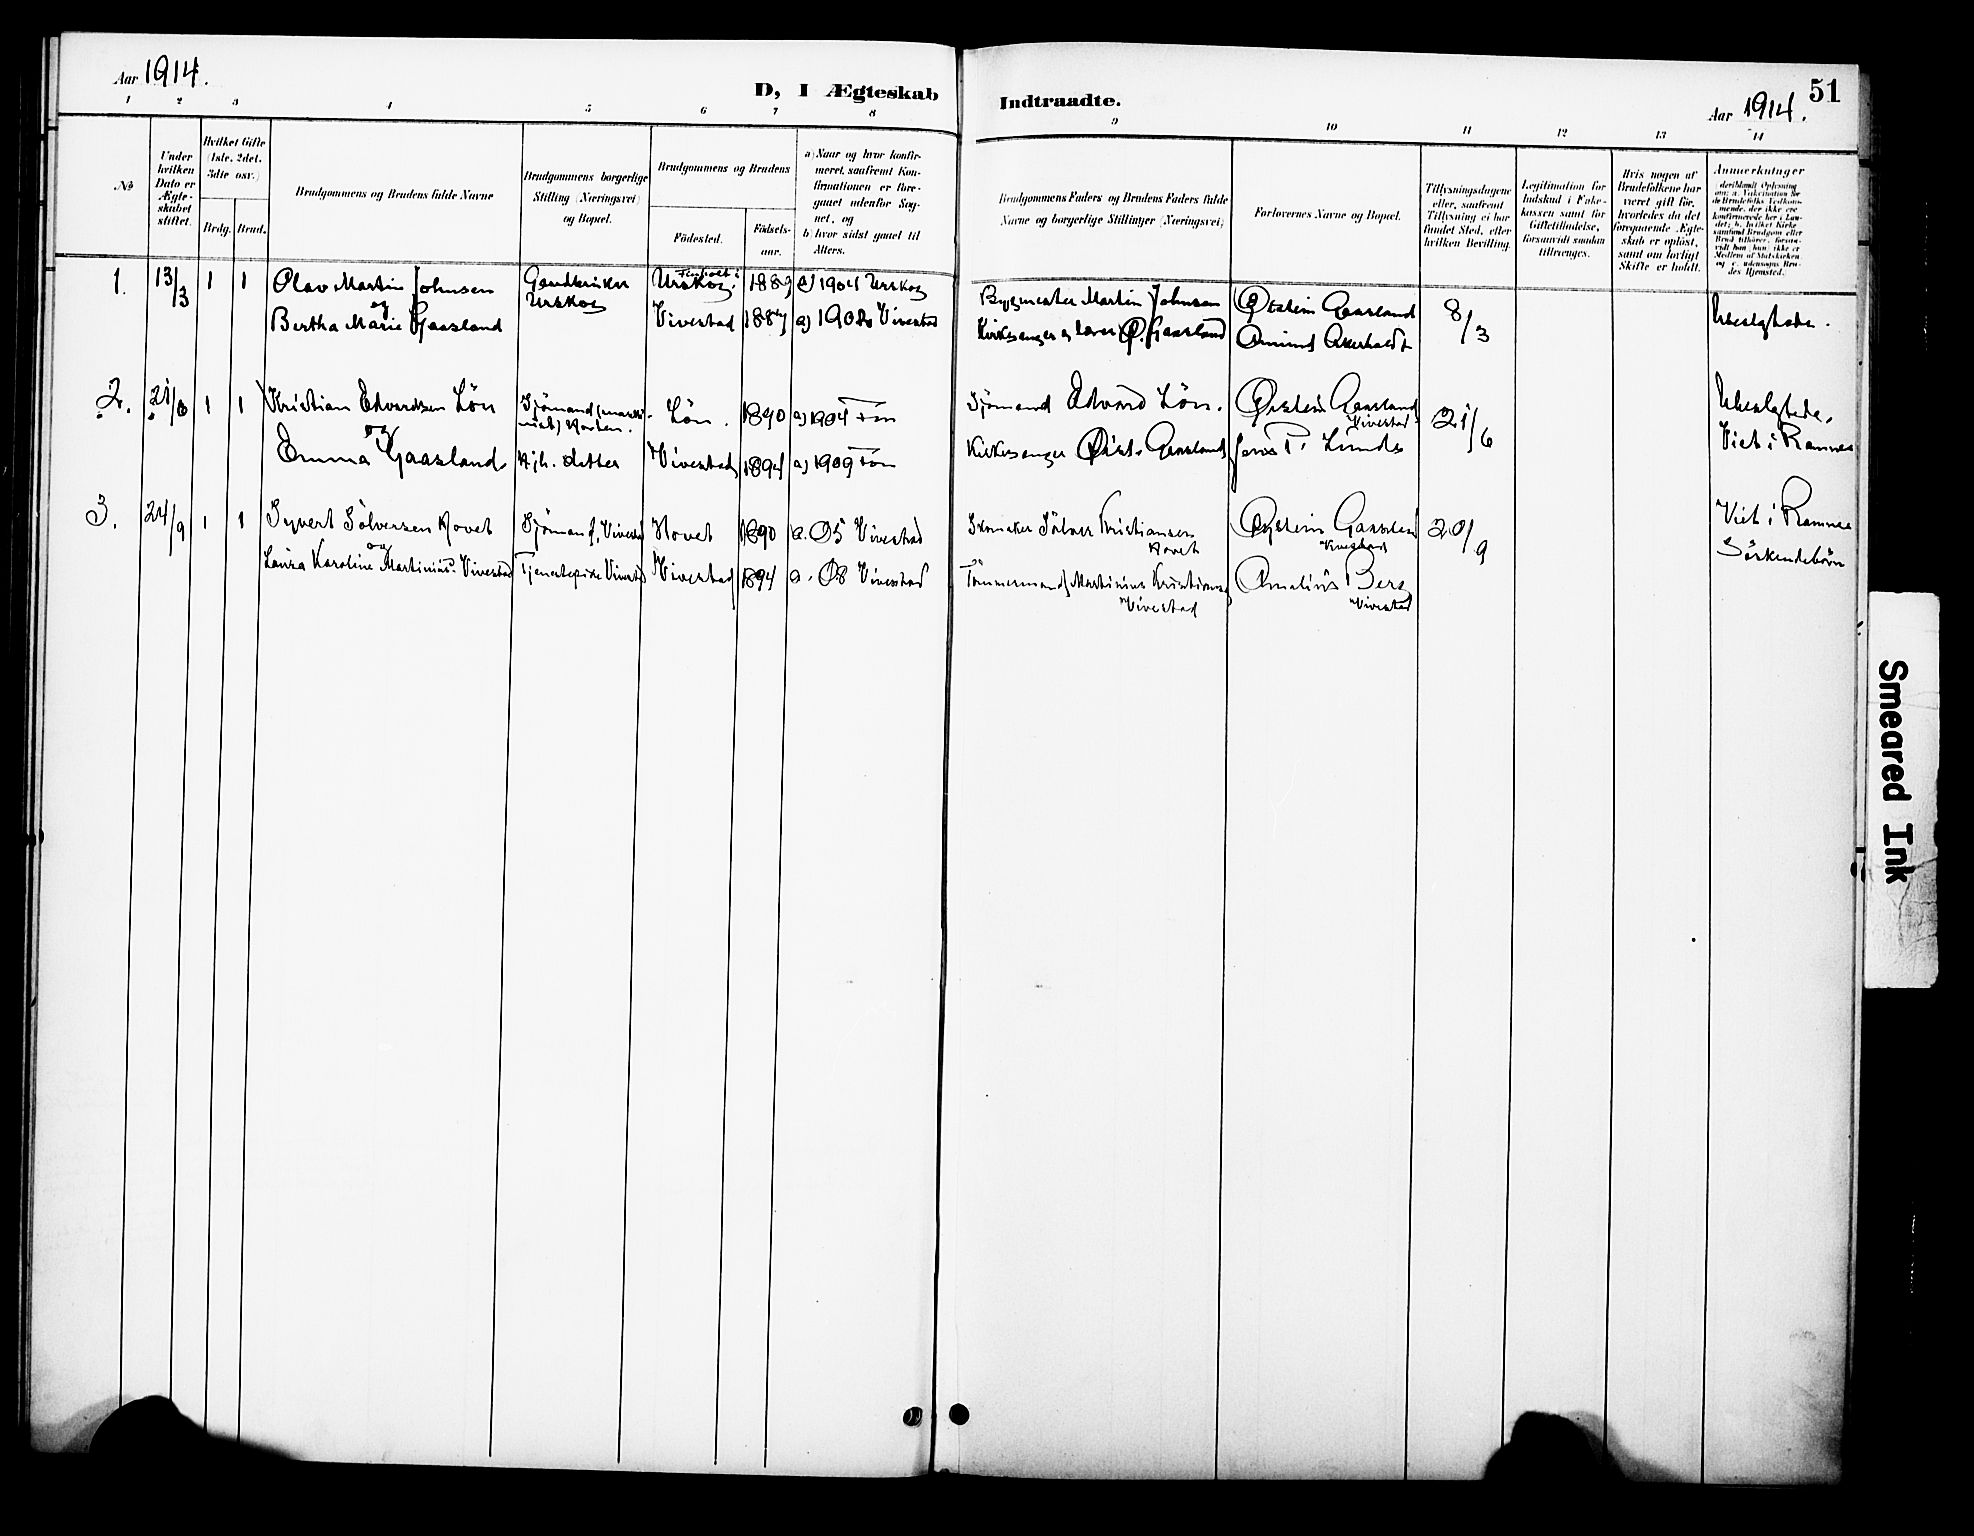 Aar 1914.
D, I Ægteskab
Indtraadte.
51
Aar 1914.
1 2 3 4 5 6 7 8
9 10 11 12 13 14
No
Under hvilken Dato er Ægteskabet stiftet.
Hvilket Gifte (1ste, 2det, 3die osv.)
Brdg. Brud.
Brudgommens og Brudens fulde Navne
Brudgommens borgerlige Stilling (Næringsvei) og Bopæl.
Brudgommens og Brudens
Födested.
Födselsaar.
a) Naar og hvor konfirmeret, saafremt Konfirmationen er foregaaet udenfor Sognet, og
b) hvor sidst gaaet til Alters.
Brudgommens Faders og Brudens Faders fulde Navne og borgerlige Stillinger (Næringsvei)
Forlovernes Navne og Bopæl.
Tillysningsdagene eller, saafremt Tillysning ei har fundet Sted, efter hvilken Bevilling.
Legitimation for Indskud i Enkekassen samt for Giftetilladelse, forsaavidt saadan tiltrænges.
Hvis nogen af Brudefolkene har været gift för, hvorledes da det foregaaende Ægteskab er oplöst, samt om lovligt Skifte er holdt.
Anmærkninger
1. 13/3 1 1 Olav Martin Johnsen Urskog. 1889 a) 1904 Urskog
Urskog
og
Bertha Marie Gaasland Vivestad 1887 a) 1902 Vivestad
Bygmester Martin Johnsen Øistein Gaasland 8/3 Ubeslgtede.
Kirkesanger og lærer Ø. Gaasland
2. 21/6 1 1 Kristian Edvardsen Lön Sjömand Lön. 1890 a) 1904 Fon
Horten.
og
Emma Gaasland Vivestad 1894 a) 1909 Fon
Sjömand Edvard Lön. Øistein Gaasland 21/6 Ubeslgtede.
Vivestad
Kirkesanger Øist. Gaasland Viet i Ramnes
3. 24/9 1 1 Syvert Sölversen Hovet Sjöman f. Vivestad Hovet 1890 a. 05 Vivestad
og
Laura Karoline Martinius. Vivestad Tjenestepike Vivestad Vivestad 1894 a. 08 Vivestad
Skomaker Sölver Kristiansen Øystein Gaasland 20/9 Viet i Ramnes
Hovet Vivestad Söskendebörn
Tömmermand Martinius Kristiansen Amalius Berg
Vivestad Vivestad
Smeared Ink